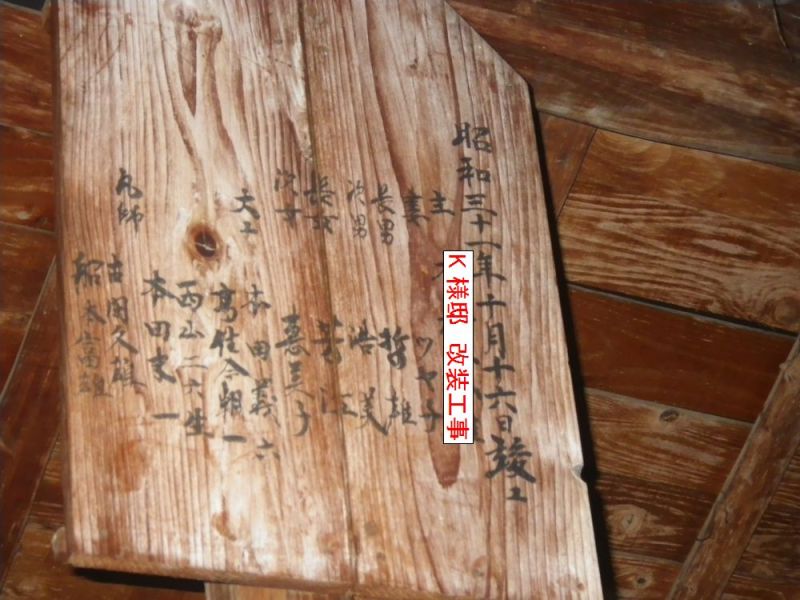 昭和三十一年十月十六日竣工
主
妻 ツヤ子
長男 哲雄
次男 浩美
長女
次女 恵美子
大工 本田義六
高住今朝一
西山三六生
本田末一
瓦師 吉岡久旗
船本富雄
K様邸 改装工事